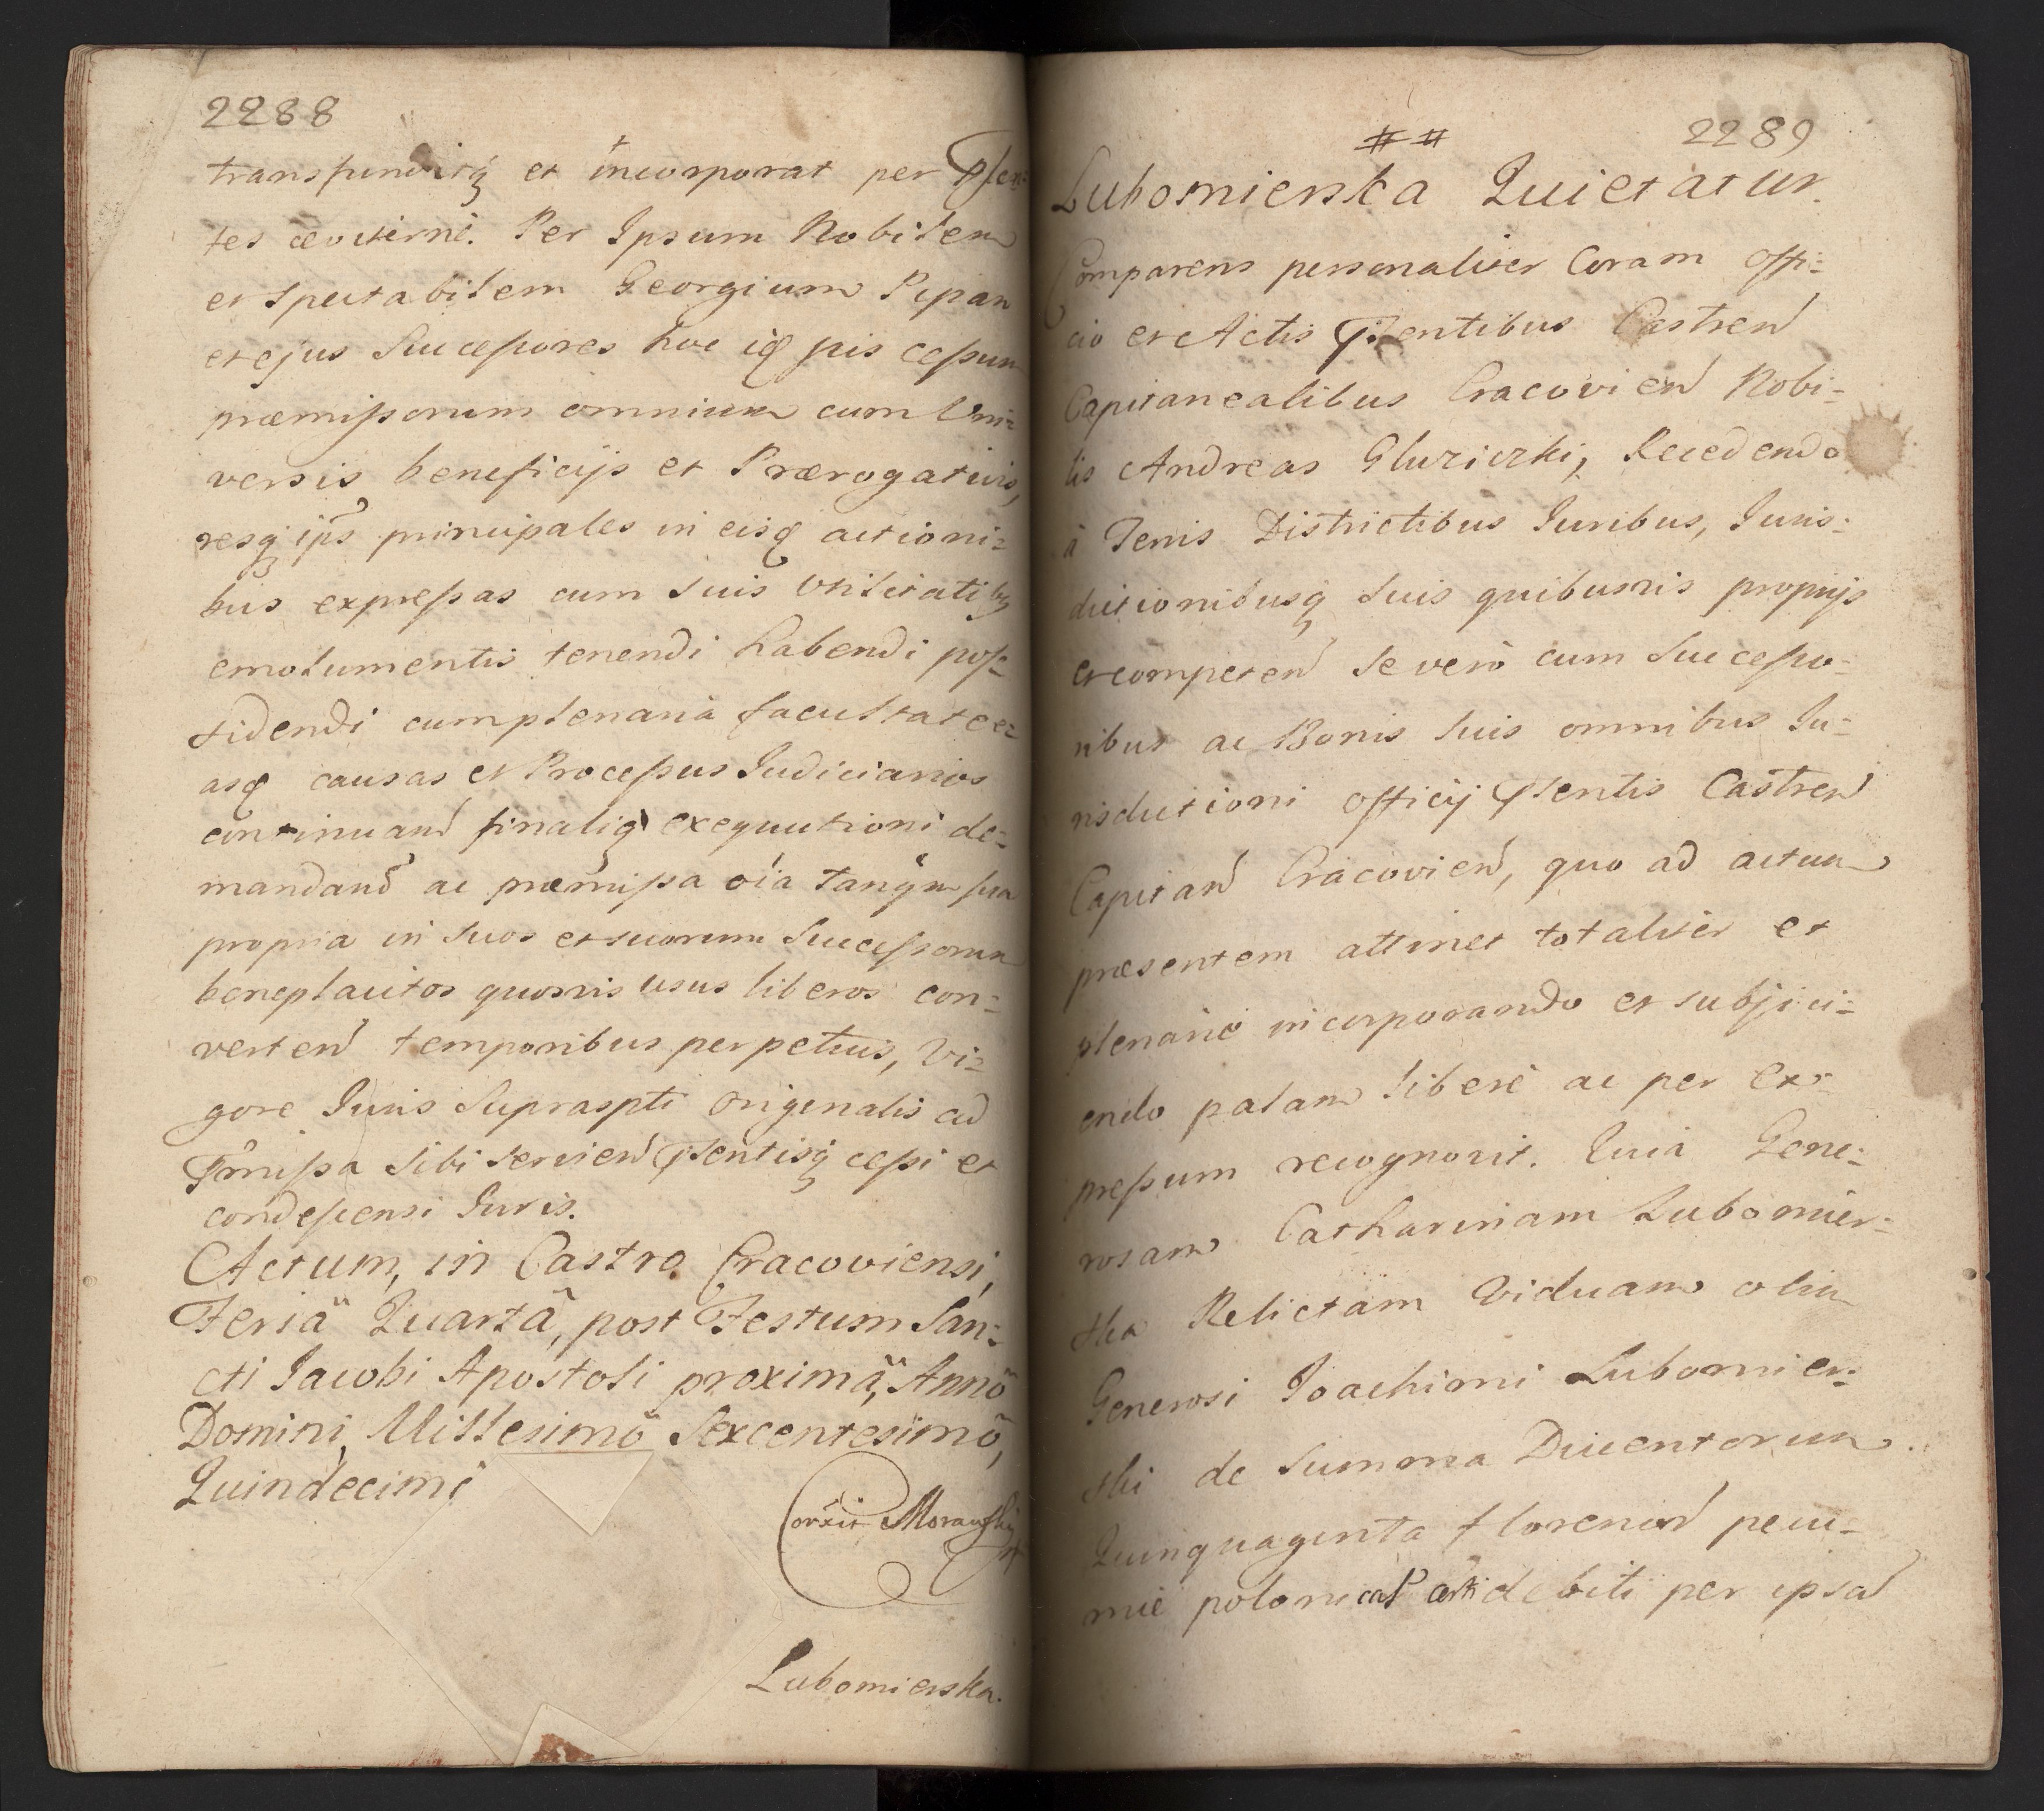 2288
transfunditq et incorporat per Psen:
tes æviterne. Per Ipsum Nobilem
et Spectabilem Georgium Pipan
et ejus Successores hoc
præmissorum omnium cum Vni=
versis beneficijs et Prærogativis,
resq ips principales in eisq actioni=
bus expressas cum suis Vtilitatibq
emolumentis tenendi habendi pos=
sidendi cum plenaria facultate e=
asq causas et Processus Iudiciarios
continuand finaliq exequutioni de=
mandand ac præmissa oia tanqm sua
propria in suos et suorum Successorum
beneplacitos quosvis usus liberos con=
verten temporibus perpetuis, Vi=
gore Iuris Supraspti originalis ad
Pmissa sibi servien Psentisq cessi et
condescensi Iuris.
Actum, in Castro Cracoviensi,
Feriâ Quartâ, post Festum San=
cti Iacobi Apostoli proximâ, Annô
Domini, Millesimô Sexcentesimô,
Quindecimô
Corrxit Morawsky
Lubomierska.
2289
Lubomierska Quietatur.
Comparens personaliter Coram Offi=
cio et Actis Psentibus Castren
Capitanealibus Cracovien Nobi=
lis Andreas Gluziczki, Recedendo
à Terris Districtibus Iuribus, Iuris=
dictionibusq suis quibusvis proprijs
et competen se verò cum Successo=
ribus ac Bonis suis omnibus Iu=
risdictioni officij Psentis Castren
Capitan Cracovien, quo ad actum
præsentem attinet totaliter et
plenariè incorporando et subjici=
endo palam liberè ac per ex=
pressum recognovit. Quia Gene=
rosam Catharinam Lubomier=
ska Relictam Viduam olim
Generosi Ioachimi Lubomier=
ski de Summa Ducentorum
Quinquaginta florenor pecu=
niæ polonical debiti per ipsa